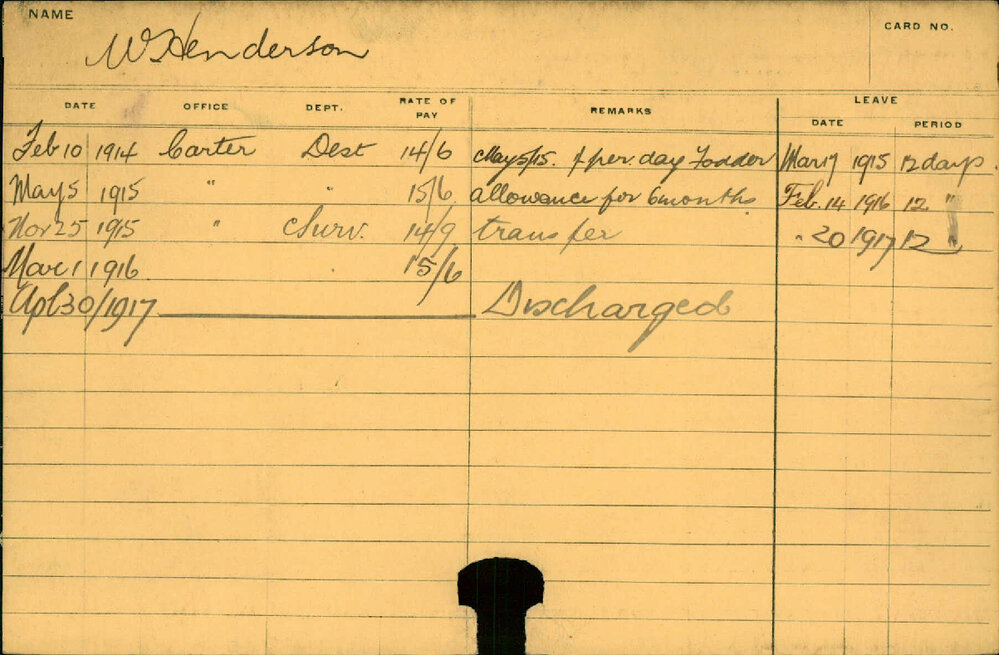 NAME
CARD NO.
W Henderson
DATE OFFICE DEPT. RATE OF PAY REMARKS LEAVE
DATE PERIOD
Feb 10 1914 Carter Dest 14/6 May 5/15. per day Fodder Mar 17 1915 12 days
May 5 1915 " " 15/6 allowance for 6 months Feb. 14 1916 12 "
Nov 25 1915 " Surv. 14/9 transfer " 20 1917 12 "
Mar 1 1916 15/6
Apl 30/1917 Discharged